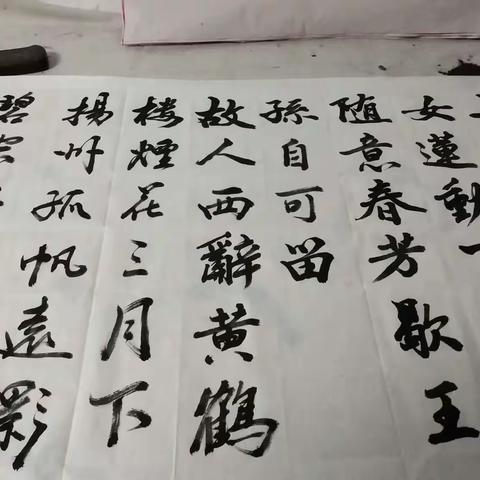 女蓮動
随意春芳歇王
孫自可留
故人西辭黄鶴
楼煙花三月下
揚州孤帆遠影
碧空